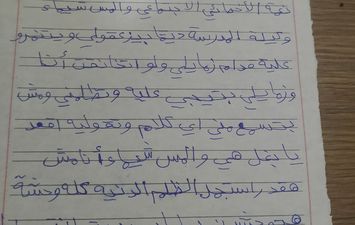 نمة الأخصائي الاجتماعي والمس شيماء
وكيلة المدرسة ديما بيزعقولي ويتنمرو
علية قدام زمايلي ولو اتخانقت أنا
وزمايلي بتيجي عليه وتظلمني ومش
بتسمع مني اي كلام وتقوليه اقعد
يا بغل هي والمس شيماء وأنا مش
هقدر استحمل الظلم الدنيه كله وحشة